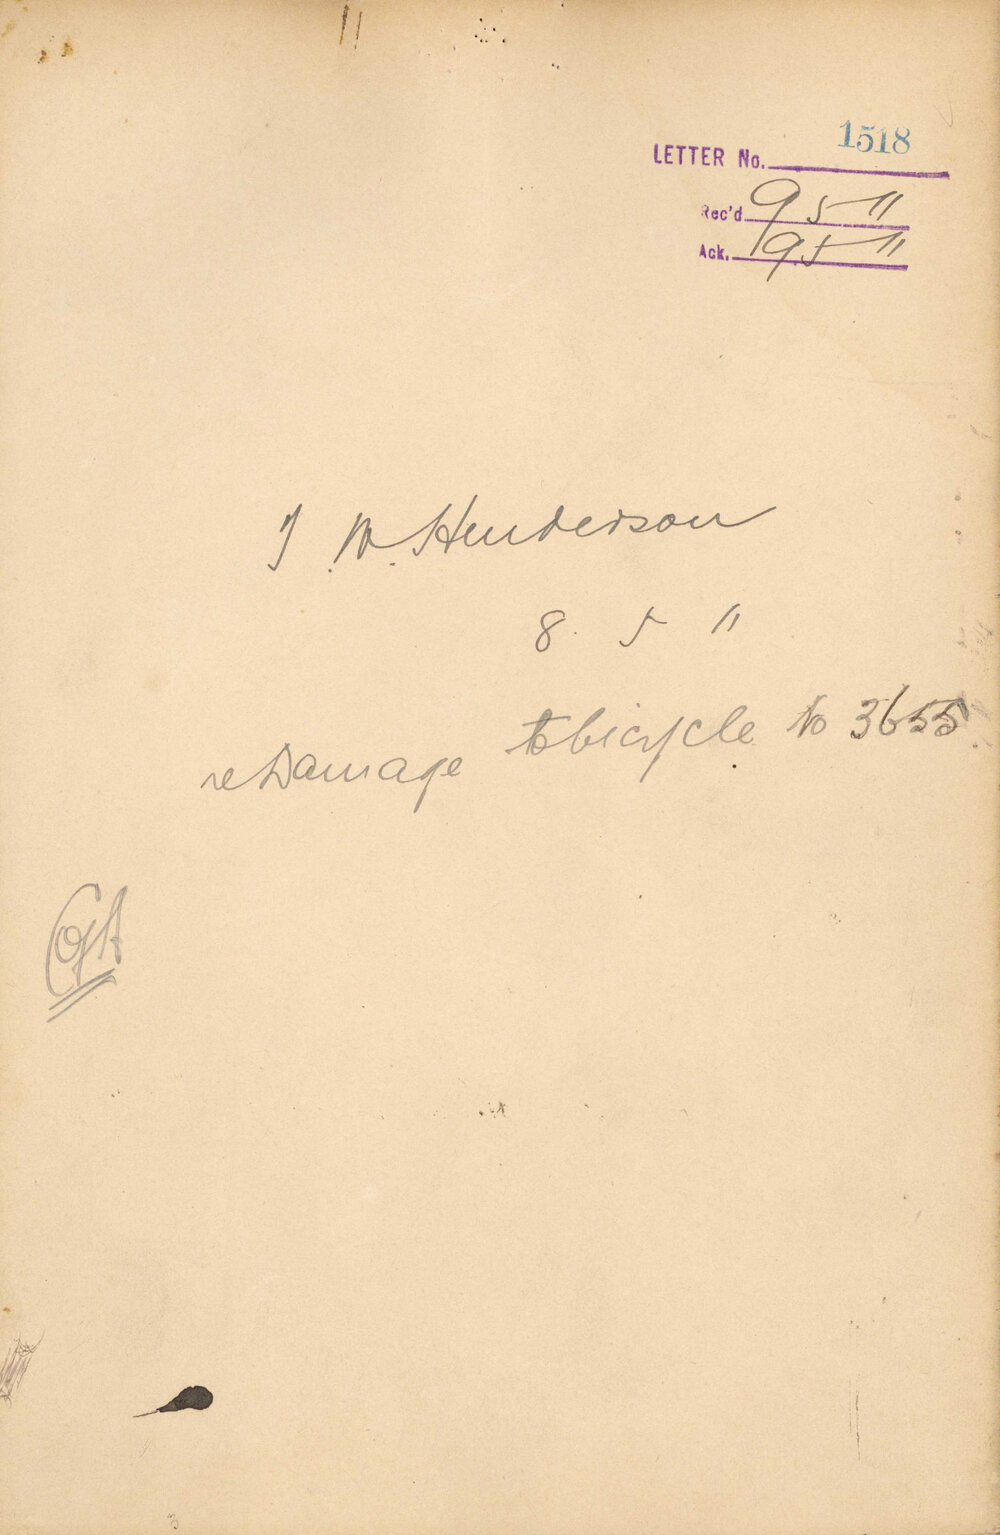 LETTER No. 1518
Rec'd 9 5 11
Ack. 9 5 11
J. M. Henderson
8. 5 11
re Damage to bicycle No 3655